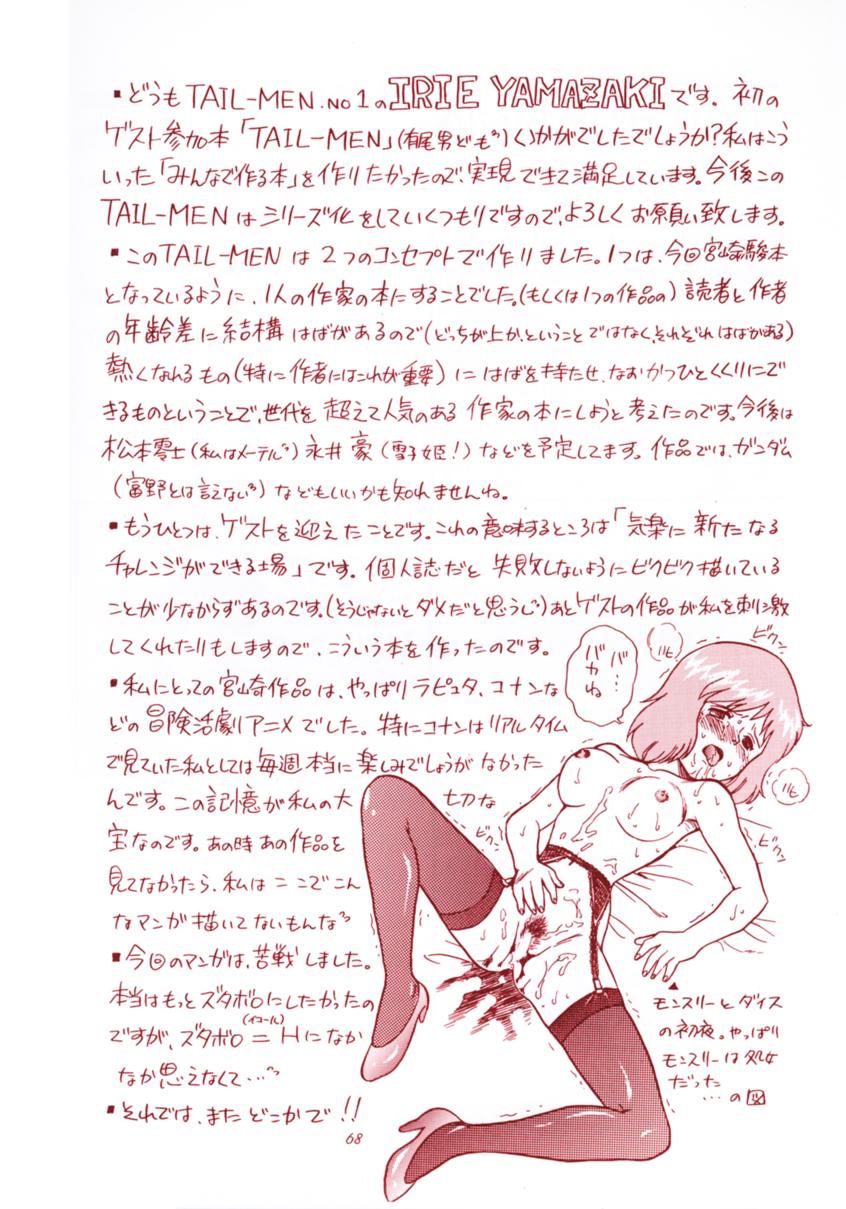 ▪どうもTAIL-MEN.NO1のIRIE YAMAZAKIです。初の
ゲスト参加本「TAIL-MEN」(有尾男ども)いかがでしたでしょうか?私はこう
いった「みんなで作る本」を作りたかったので、実現できて満足しています。今後この
TAIL-MENはシリーズ化をしていくつもりですので、よろしくお願い致します。
▪このTAIL-MENは2つのコンセプトで作りました。1つは、今回宮崎駿本
となっているように、1人の作家の本にすることでした。(もしくは1つの作品の)読者と作者
の年齢差に結構はばがあるので(どっちが上か、ということではなく、それぞれはばがある)
熱くなれるもの(特に作者にはこれが重要)にはばを持たせ、なおかつひとくくりにで
きるものということで、世代を超えて人気のある作家の本にしようと考えたのです。今後は
松本零士(私はメーテル)永井豪(雪子姫!)などを予定してます。作品では、ガンダム
(富野とは言えない)などもいいかも知れませんね。
▪もうひとつは、ゲストを迎えたことです。これの意味するところは「気楽に新たなる
チャレンジができる場」です。個人誌だと失敗しないようにビクビク描いている
ことが少なからずあるのです。(そうじゃないとダメだと思うし)あとゲストの作品が私を刺激
してくれたりもしますので、こういう本を作ったのです。
▪私にとっての宮崎作品は、やっぱりラピュタ、コナンな
どの冒険活劇アニメでした。特にコナンはリアルタイム
で見ていた私としては毎週本当に楽しみでしょうがなかった
んです。この記憶が私の大切な
宝なのです。あの時あの作品を
見てなかったら、私はここでこん
なマンガ描いてないもんな
▪今回のマンガは、苦戦しました。
本当はもっとズタボロにしたかったの
ですが、ズタボロ=(イコール)Hになか
なか思えなくて…
▪それでは、またどこかで!!
バ…
バカね
ビクン
ハヒ
ハヒ
ビクン
ビクン
▲
モンスリーとダイス
の初夜。やっぱり
モンスリーは処女
だった
…の図
68